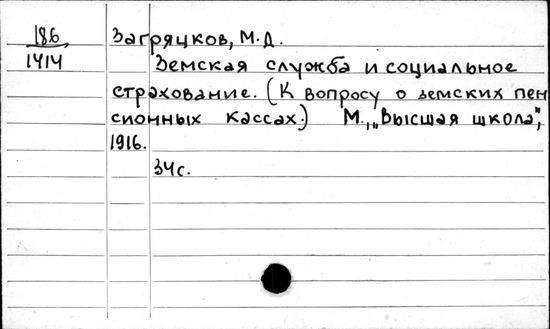 186
1414
Загряцков, М.Д.
Земская служба и социальное
страхование. (К вопросу о земских пен
сионных кассах.) М., „Высшая школа",
1916.
34с.